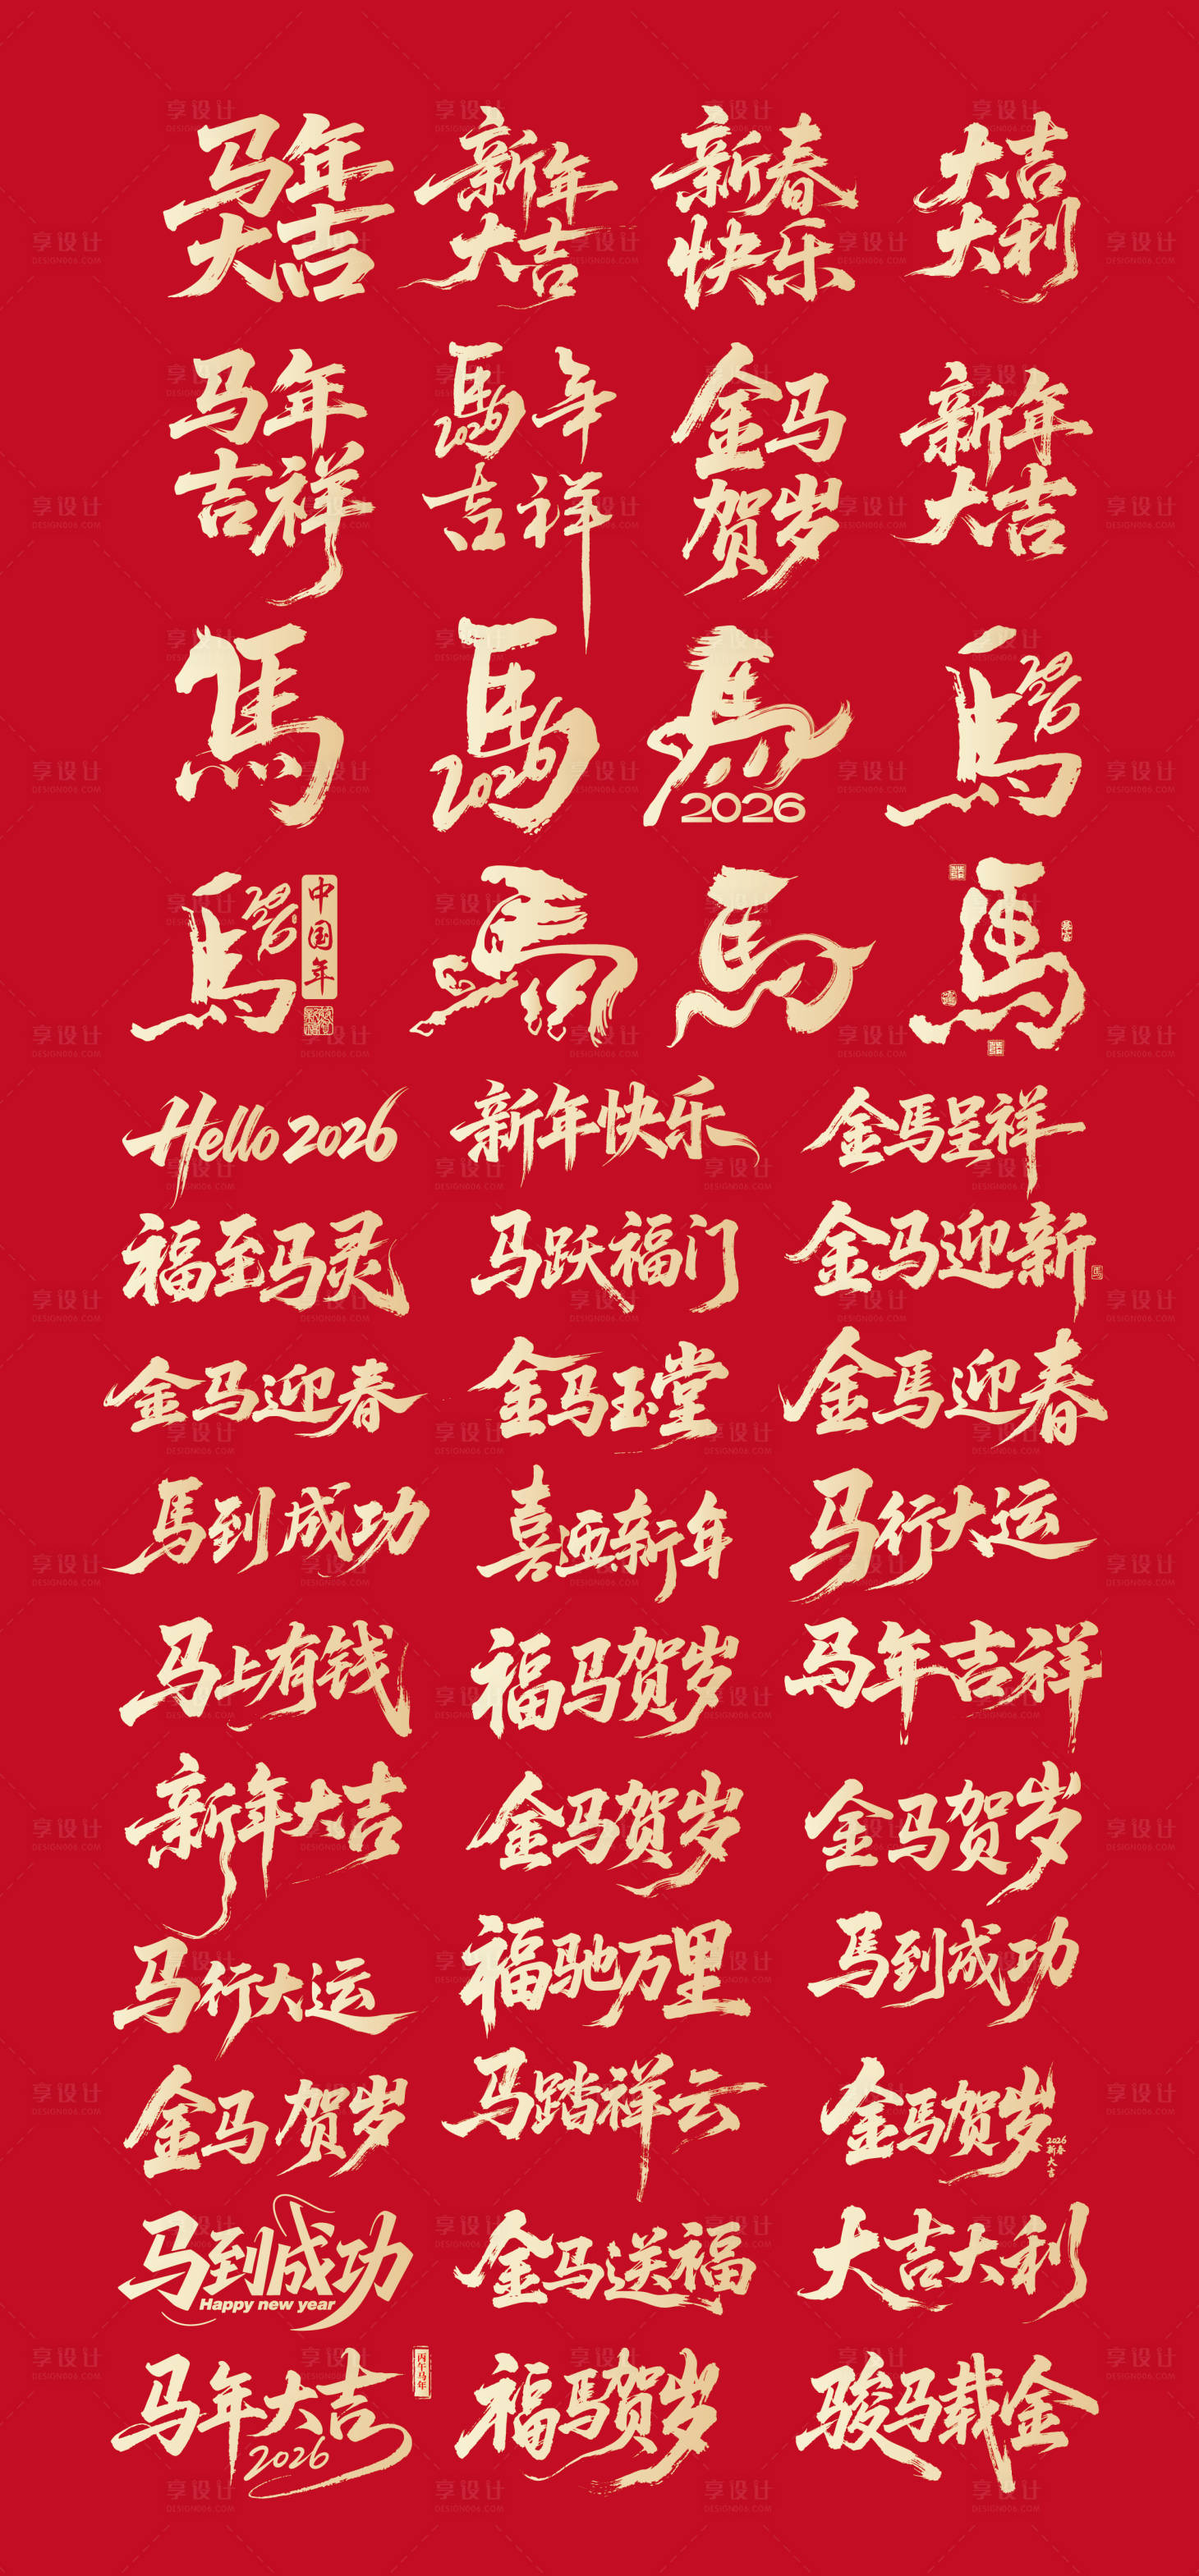 马年
大吉
新年
大吉
新春
快乐
大吉
大利
马年
吉祥
馬年
2026
吉祥
金马
贺岁
新年
大吉
馬
馬
2026
馬
2026
馬
2026
馬
2026
中国年
馬
馬
馬
Hello 2026
新年快乐
金馬呈祥
福至马灵
马跃福门
金马迎新
金马迎春
金马玉堂
金馬迎春
馬到成功
喜迎新年
马行大运
马上有钱
福马贺岁
马年吉祥
新年大吉
金马贺岁
金马贺岁
马行大运
福驰万里
馬到成功
金马贺岁
马踏祥云
金馬贺岁
2026
新春
大吉
马到成功
Happy new year
金马送福
大吉大利
马年大吉
2026
丙午马年
福馬贺岁
骏马载金
享设计
DESIGN006.COM